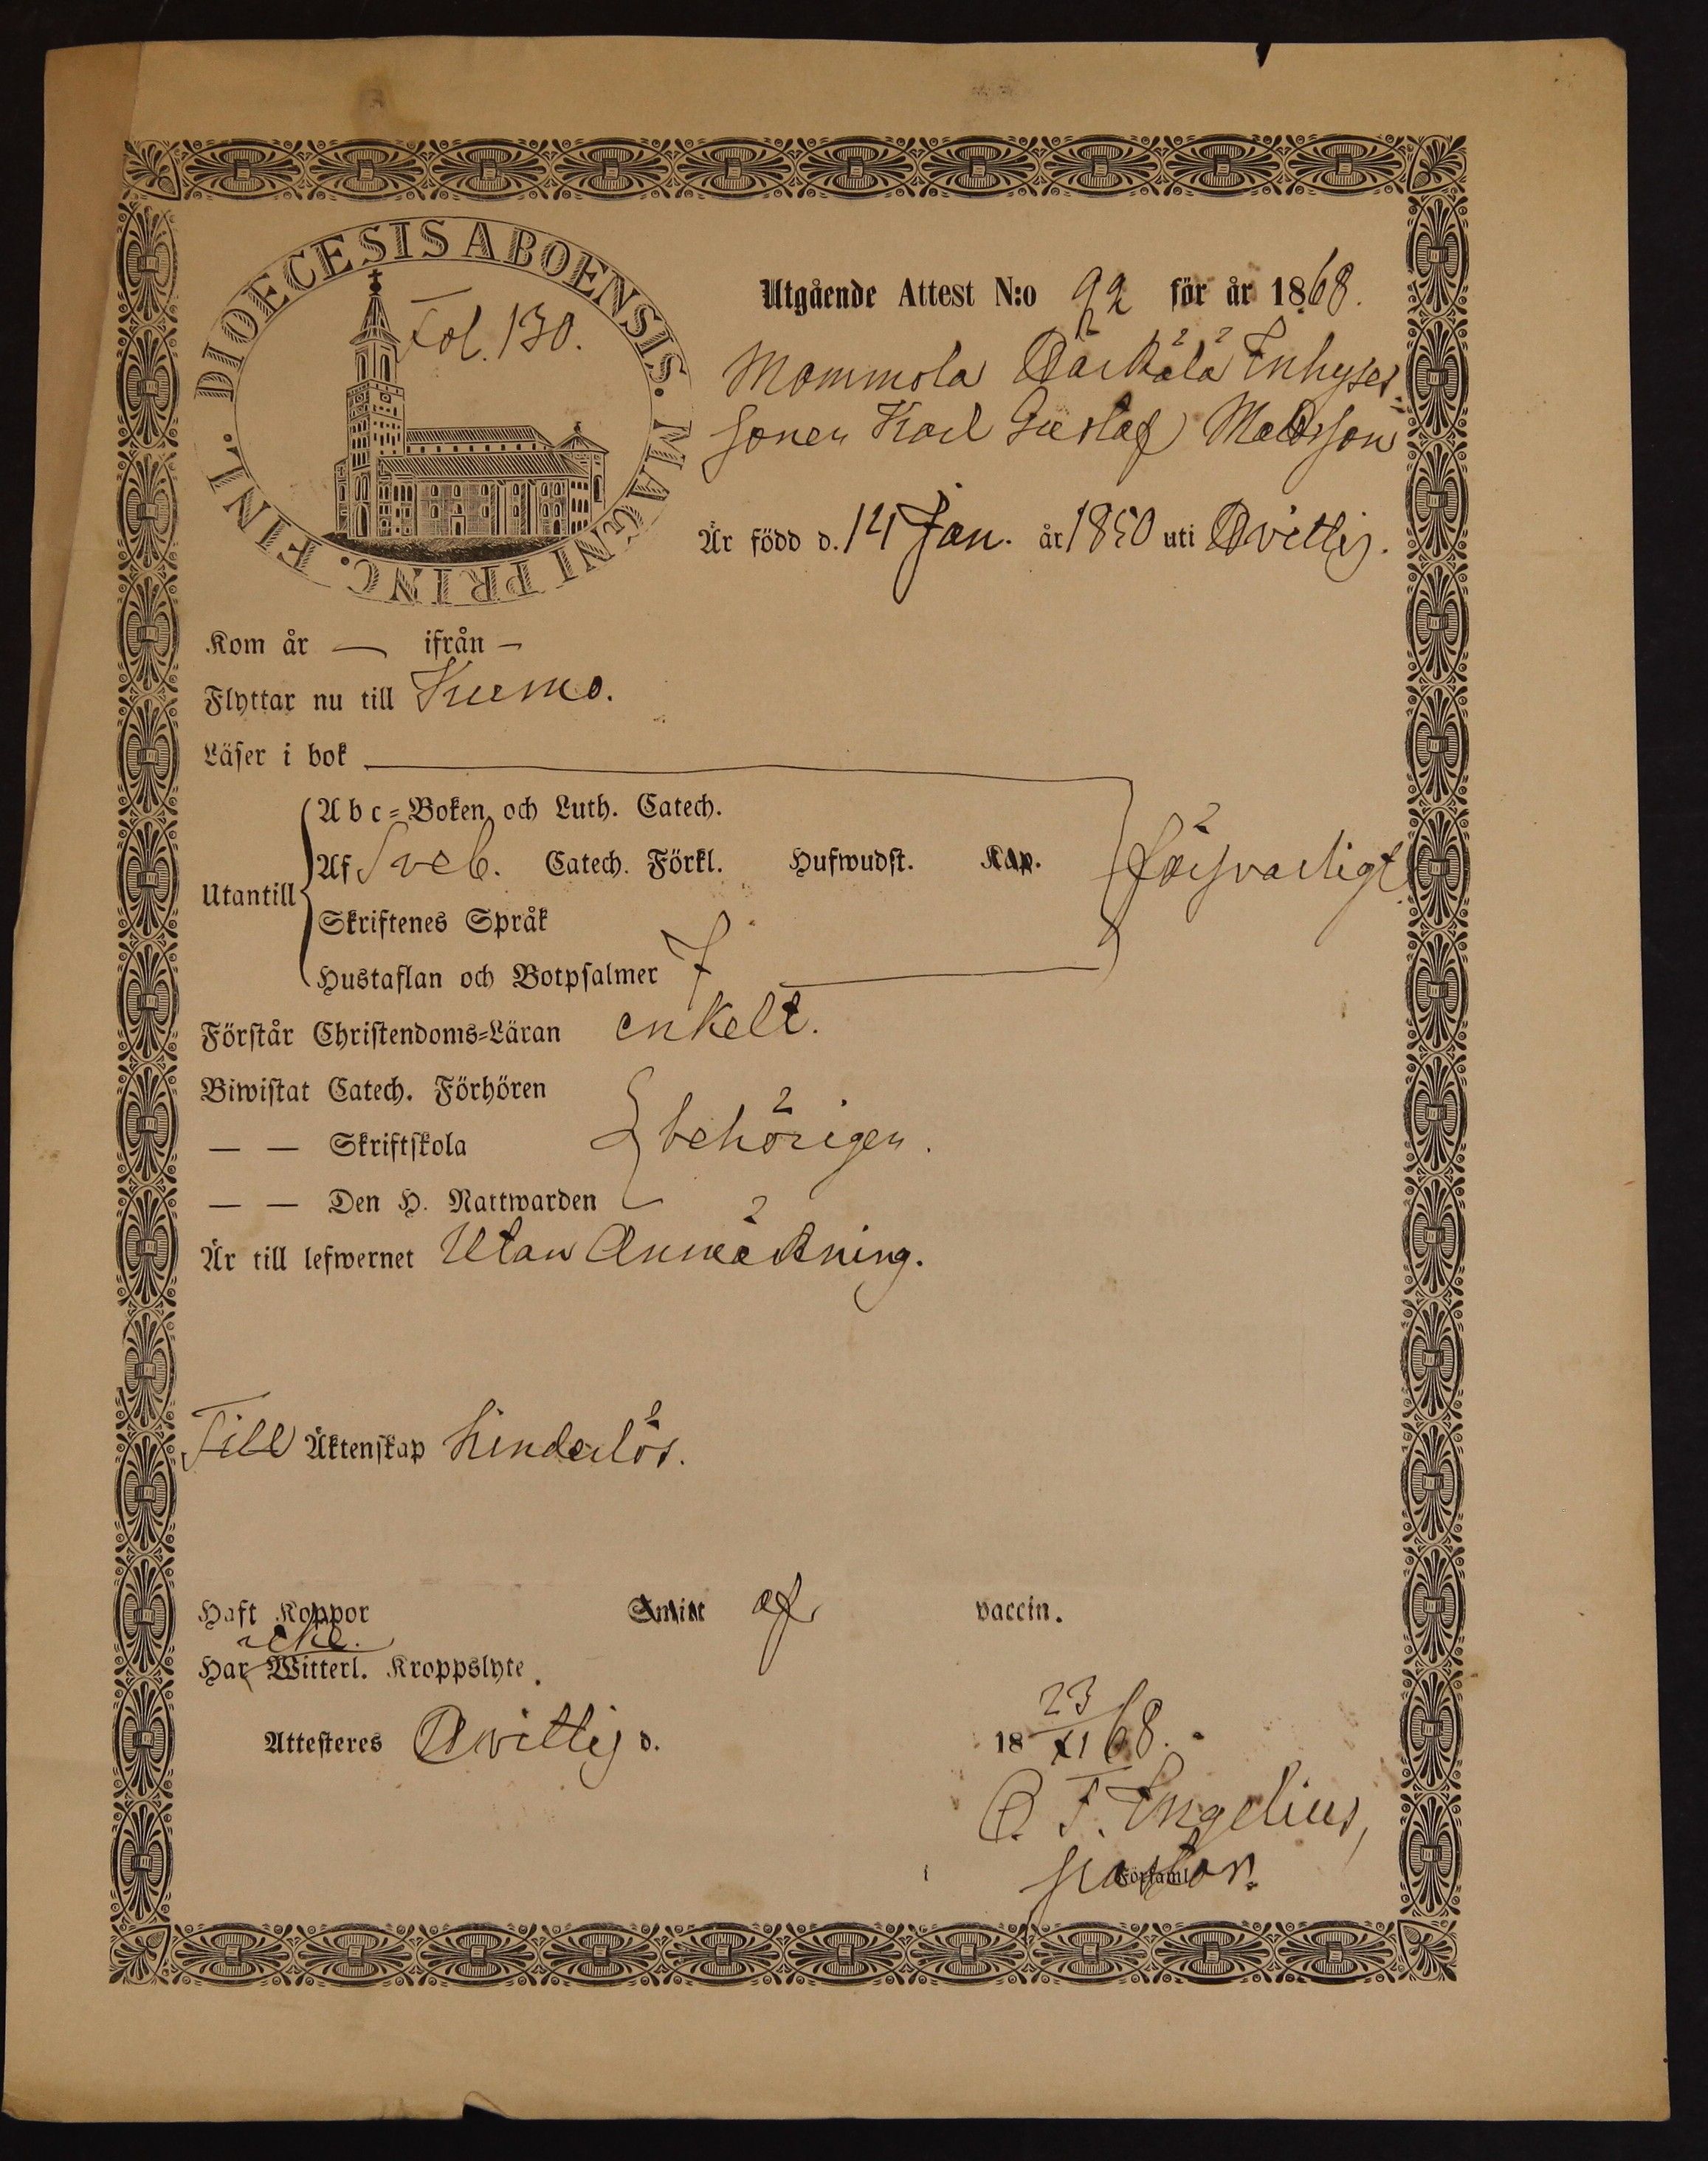 DIOECESIS ABOENSIS. MAGNI PRINC. FINL.
Fol. 130.
Utgående Attest N:o 92 för år 1868.
Mommola Inhyses
sonen Karl Gustaf Matsson
Är född d. 14 Jan. år 1850 uti Hvittis.
Kom år — ifrån —
Flyttar nu till Kumo.
Läser i bok
Utantill
Abc-Boken och Luth. Catech.
Af Sveb. Catech. Förkl. Hufwudst. Kap.
försvarligt
Skriftenes Språk
Hustaflan och Botpsalmer 7
Förstår Christendoms-Läran enkelt.
Biwistat Catech. Förhören
— — Skriftskola
behörigen.
— — Den H. Nattwarden
Är till lefwernet Utan Anmärkning.
Till Äktenskap hinderlös.
Haft Koppor af vaccin.
icke.
Har Witterl. Kroppslyte.
Attesteres Hvittis d. 18 23/XI 68.
F. Engelius,
pastor.
i Församl.